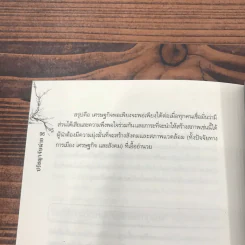 สรุปคือ เศรษฐกิจพอเพียงจะพอเพียงได้ต่อเมื่อทุกคนเชื่อมั่นว่ามี
ส่วนได้เสียและความพึงพอใจร่วมกัน และการที่จะนำให้สร้างสภาพเช่นนี้ได้
ผู้นำต้องมีความมุ่งมั่นที่จะสร้างสังคมและสภาพแวดล้อม (ทั้งปัจจัยทาง
การเมือง เศรษฐกิจ และสังคม) ที่เอื้ออำนวย